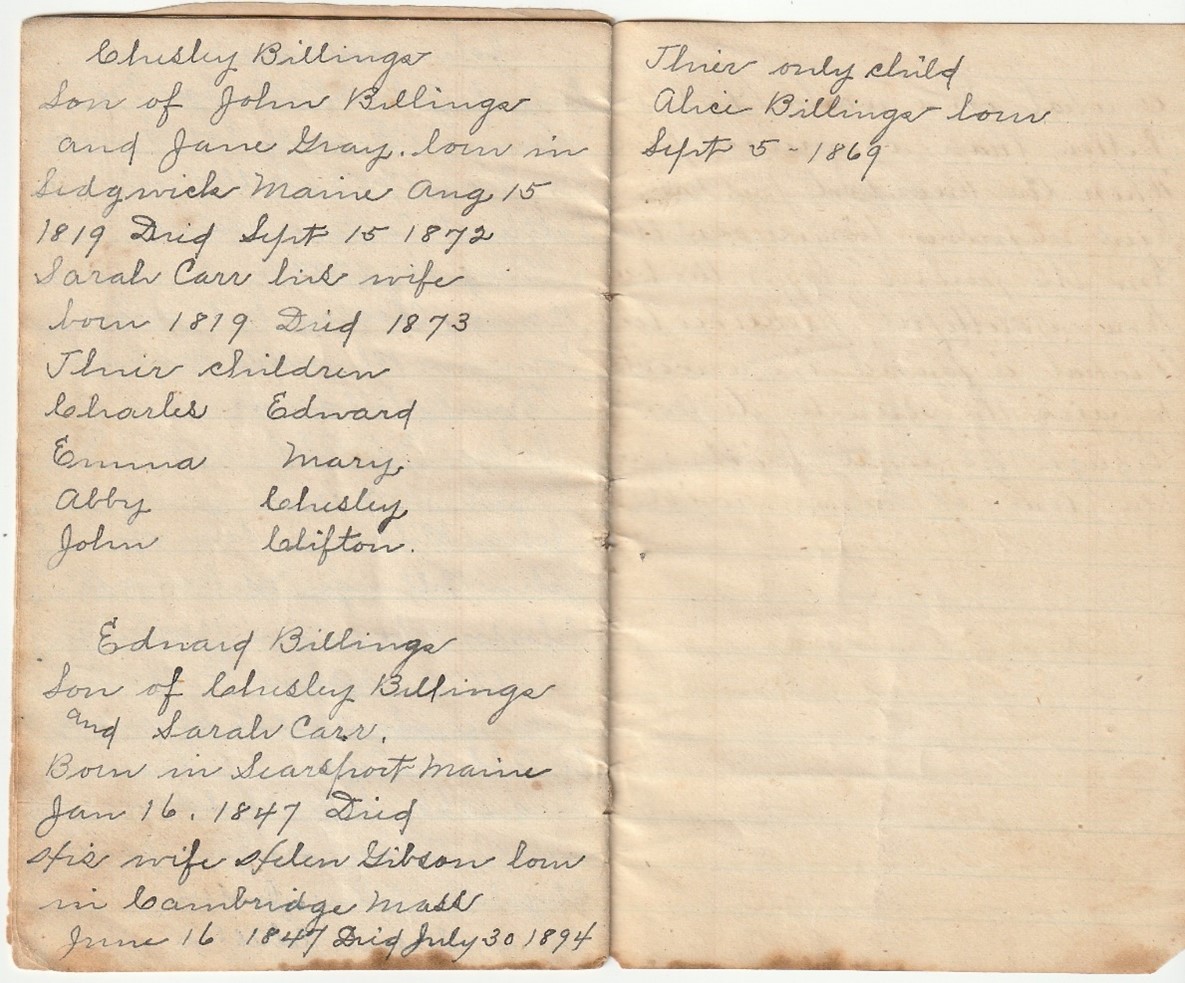 Chesley Billings
Son of John Billings
and Jane Gray. born in
Sedgwick Maine Aug 15
1819 Died Sept 15 1872
Sarah Carr his wife
born 1819 Died 1873
Thier children
Charles Edward
Emma Mary
Abby Chesley
John Clifton.
Edward Billings
Son of Chesley Billings
and Sarah Carr.
Born in Searsport Maine
Jan 16. 1847 Died
His wife Helen Gibson born
in Cambridge Mass
June 16 1847 Died July 30 1894
Thier only child
Alice Billings born
Sept 5 - 1869